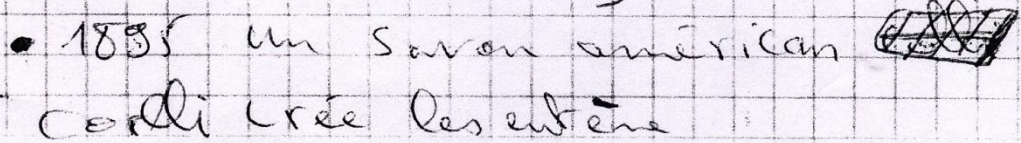 • 1895 un savon américan
corlli crée les entène